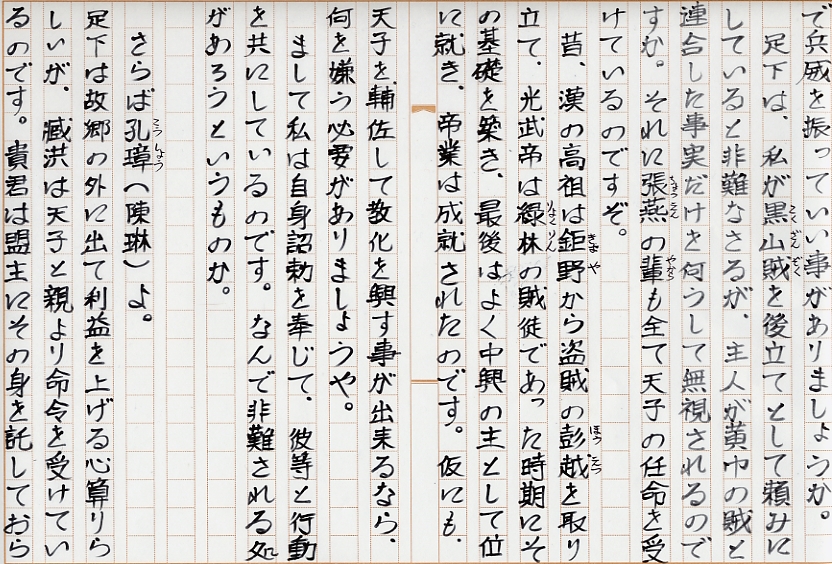 で兵威を振っていい事がありましょうか。
足下は、私が黒山賊を後立てとして頼みに
していると非難なさるが、主人が黄巾の賊と
連合した事実だけを何うして無視されるので
すか。それに張燕の輩も全て天子の任命を受
けているのですぞ。
昔、漢の高祖は鉅野から盗賊の彭越を取り
立て、光武帝は緑林の賊徒であった時期にそ
の基礎を築き、最後はよく中興の主として位
に就き、帝業は成就されたのです。仮にも、
天子を輔佐して教化を興す事が出来るなら、
何を嫌う必要がありましょうや。
まして私は自身詔勅を奉じて、彼等と行動
を共にしているのです。なんで非難される処
があろうというものか。
さらば孔璋（陳琳）よ。
足下は故郷の外に出て利益を上げる心算りら
しいが、臧洪は天子と親より命令を受けてい
るのです。貴君は盟主にその身を託しておら